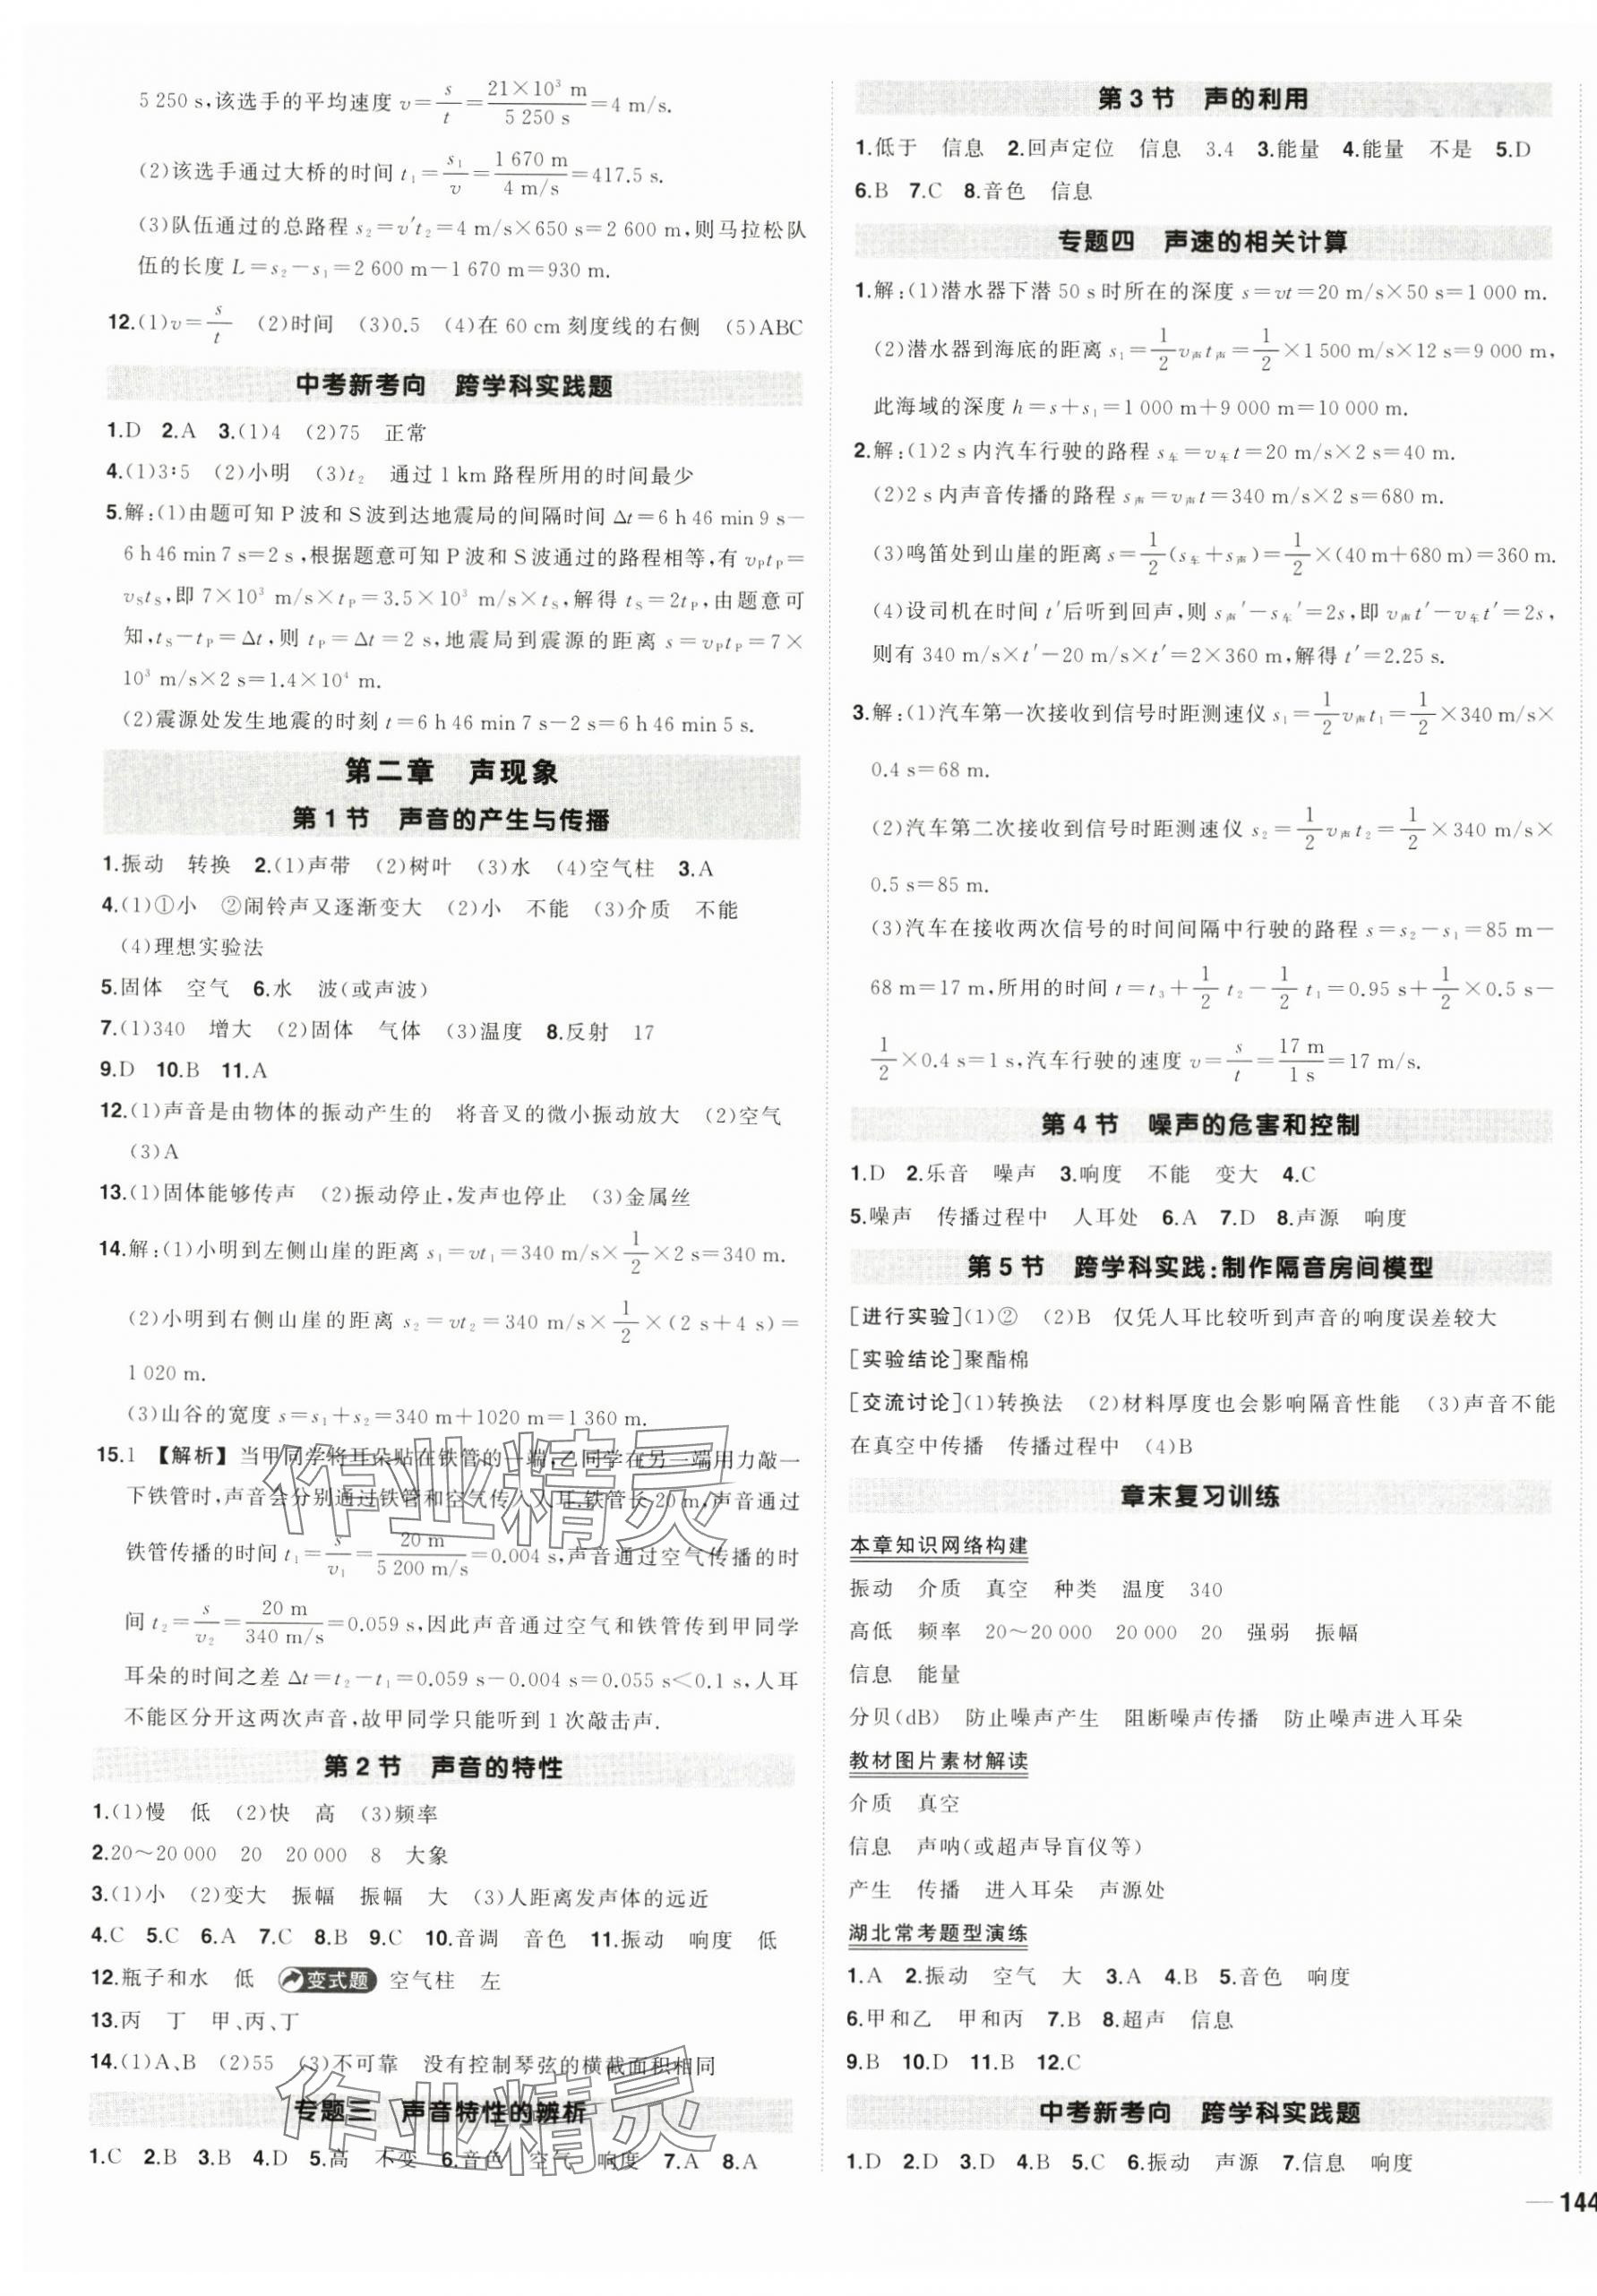 5 250 s,该选手的平均速度 v=s/t=21×10³ m/5 250 s=4 m/s.
(2)该选手通过大桥的时间 t₁=s₁/v=1 670 m/4 m/s=417.5 s.
(3)队伍通过的总路程 s₂=v′t₂=4 m/s×650 s=2 600 m,则马拉松队
伍的长度 L=s₂-s₁=2 600 m-1 670 m=930 m.
12.(1)v=s/t (2)时间 (3)0.5 (4)在 60 cm 刻度线的右侧 (5)ABC
中考新考向 跨学科实践题
1.D 2.A 3.(1)4 (2)75 正常
4.(1)3∶5 (2)小明 (3)t₂ 通过 1 km 路程所用的时间最少
5.解:(1)由题可知 P 波和 S 波到达地震局的间隔时间 Δt=6 h 46 min 9 s-
6 h 46 min 7 s=2 s,根据题意可知 P 波和 S 波通过的路程相等,有 vPtP=
vStS,即 7×10³ m/s×tP=3.5×10³ m/s×tS,解得 tS=2tP,由题意可
知,tS-tP=Δt,则 tP=Δt=2 s,地震局到震源的距离 s=vPtP=7×
10³ m/s×2 s=1.4×10⁴ m.
(2)震源处发生地震的时刻 t=6 h 46 min 7 s-2 s=6 h 46 min 5 s.
第二章 声现象
第 1 节 声音的产生与传播
1.振动 转换 2.(1)声带 (2)树叶 (3)水 (4)空气柱 3.A
4.(1)①小 ②闹铃声又逐渐变大 (2)小 不能 (3)介质 不能
(4)理想实验法
5.固体 空气 6.水 波(或声波)
7.(1)340 增大 (2)固体 气体 (3)温度 8.反射 17
9.D 10.B 11.A
12.(1)声音是由物体的振动产生的 将音叉的微小振动放大 (2)空气
(3)A
13.(1)固体能够传声 (2)振动停止,发声也停止 (3)金属丝
14.解:(1)小明到左侧山崖的距离 s₁=vt₁=340 m/s×1/2×2 s=340 m.
(2)小明到右侧山崖的距离 s₂=vt₂=340 m/s×1/2×(2 s+4 s)=
1 020 m.
(3)山谷的宽度 s=s₁+s₂=340 m+1020 m=1 360 m.
15.1 【解析】当甲同学将耳朵贴在铁管的一端,乙同学在另一端用力敲一
下铁管时,声音会分别通过铁管和空气传入人耳.铁管长 20 m,声音通过
铁管传播的时间 t₁=s/v₁=20 m/5 200 m/s=0.004 s,声音通过空气传播的时
间 t₂=s/v₂=20 m/340 m/s=0.059 s,因此声音通过空气和铁管传到甲同学
耳朵的时间之差 Δt=t₂-t₁=0.059 s-0.004 s=0.055 s<0.1 s,人耳
不能区分开这两次声音,故甲同学只能听到 1 次敲击声.
第 2 节 声音的特性
1.(1)慢 低 (2)快 高 (3)频率
2.20～20 000 20 20 000 8 大象
3.(1)小 (2)变大 振幅 振幅 大 (3)人距离发声体的远近
4.C 5.C 6.A 7.C 8.B 9.C 10.音调 音色 11.振动 响度 低
12.瓶子和水 低 变式题 空气柱 左
13.丙 丁 甲、丙、丁
14.(1)A、B (2)55 (3)不可靠 没有控制琴弦的横截面积相同
专题三 声音特性的辨析
1.C 2.B 3.B 4.D 5.高 不变 6.音色 空气 响度 7.A 8.A
第 3 节 声的利用
1.低于 信息 2.回声定位 信息 3.4 3.能量 4.能量 不是 5.D
6.B 7.C 8.音色 信息
专题四 声速的相关计算
1.解:(1)潜水器下潜 50 s 时所在的深度 s=vt=20 m/s×50 s=1 000 m.
(2)潜水器到海底的距离 s₁=1/2v声t声=1/2×1 500 m/s×12 s=9 000 m,
此海域的深度 h=s+s₁=1 000 m+9 000 m=10 000 m.
2.解:(1)2 s 内汽车行驶的路程 s车=v车t=20 m/s×2 s=40 m.
(2)2 s 内声音传播的路程 s声=v声t=340 m/s×2 s=680 m.
(3)鸣笛处到山崖的距离 s=1/2(s车+s声)=1/2×(40 m+680 m)=360 m.
(4)设司机在时间 t′后听到回声,则 s声′-s车′=2s,即 v声t′-v车t′=2s,
则有 340 m/s×t′-20 m/s×t′=2×360 m,解得 t′=2.25 s.
3.解:(1)汽车第一次接收到信号时距测速仪 s₁=1/2v声t₁=1/2×340 m/s×
0.4 s=68 m.
(2)汽车第二次接收到信号时距测速仪 s₂=1/2v声t₂=1/2×340 m/s×
0.5 s=85 m.
(3)汽车在接收两次信号的时间间隔中行驶的路程 s=s₂-s₁=85 m-
68 m=17 m,所用的时间 t=t₃+1/2 t₂-1/2 t₁=0.95 s+1/2×0.5 s-
1/2×0.4 s=1 s,汽车行驶的速度 v=s/t=17 m/1 s=17 m/s.
第 4 节 噪声的危害和控制
1.D 2.乐音 噪声 3.响度 不能 变大 4.C
5.噪声 传播过程中 人耳处 6.A 7.D 8.声源 响度
第 5 节 跨学科实践:制作隔音房间模型
[进行实验](1)② (2)B 仅凭人耳比较听到声音的响度误差较大
[实验结论]聚酯棉
[交流讨论](1)转换法 (2)材料厚度也会影响隔音性能 (3)声音不能
在真空中传播 传播过程中 (4)B
章末复习训练
本章知识网络构建
振动 介质 真空 种类 温度 340
高低 频率 20～20 000 20 000 20 强弱 振幅
信息 能量
分贝(dB) 防止噪声产生 阻断噪声传播 防止噪声进入耳朵
教材图片素材解读
介质 真空
信息 声呐(或超声导盲仪等)
产生 传播 进入耳朵 声源处
湖北常考题型演练
1.A 2.振动 空气 大 3.A 4.B 5.音色 响度
6.甲和乙 甲和丙 7.B 8.超声 信息
9.B 10.D 11.B 12.C
中考新考向 跨学科实践题
1.D 2.D 3.D 4.B 5.C 6.振动 声源 7.信息 响度
— 144
作业精灵
作业精灵